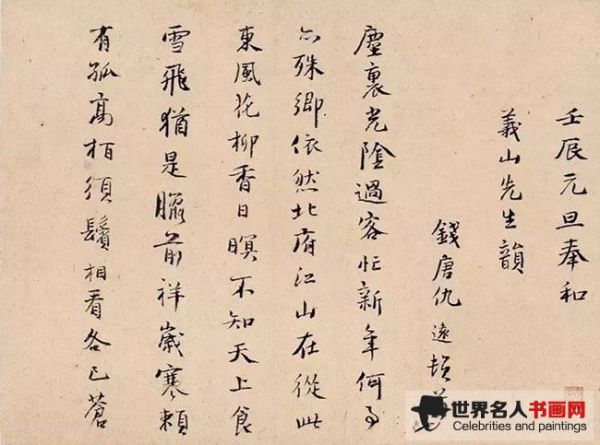 壬辰元旦奉和
義山先生韻
錢唐仇遠頓
塵裏光陰過客忙新年何事
亦殊鄉依然北府江山在從此
東風花柳香日暝不知天上食
雪飛猶是臘前祥歲寒賴
有孤高栢須鬢相看各已蒼
世界名人书画网
Celebrities and paintings